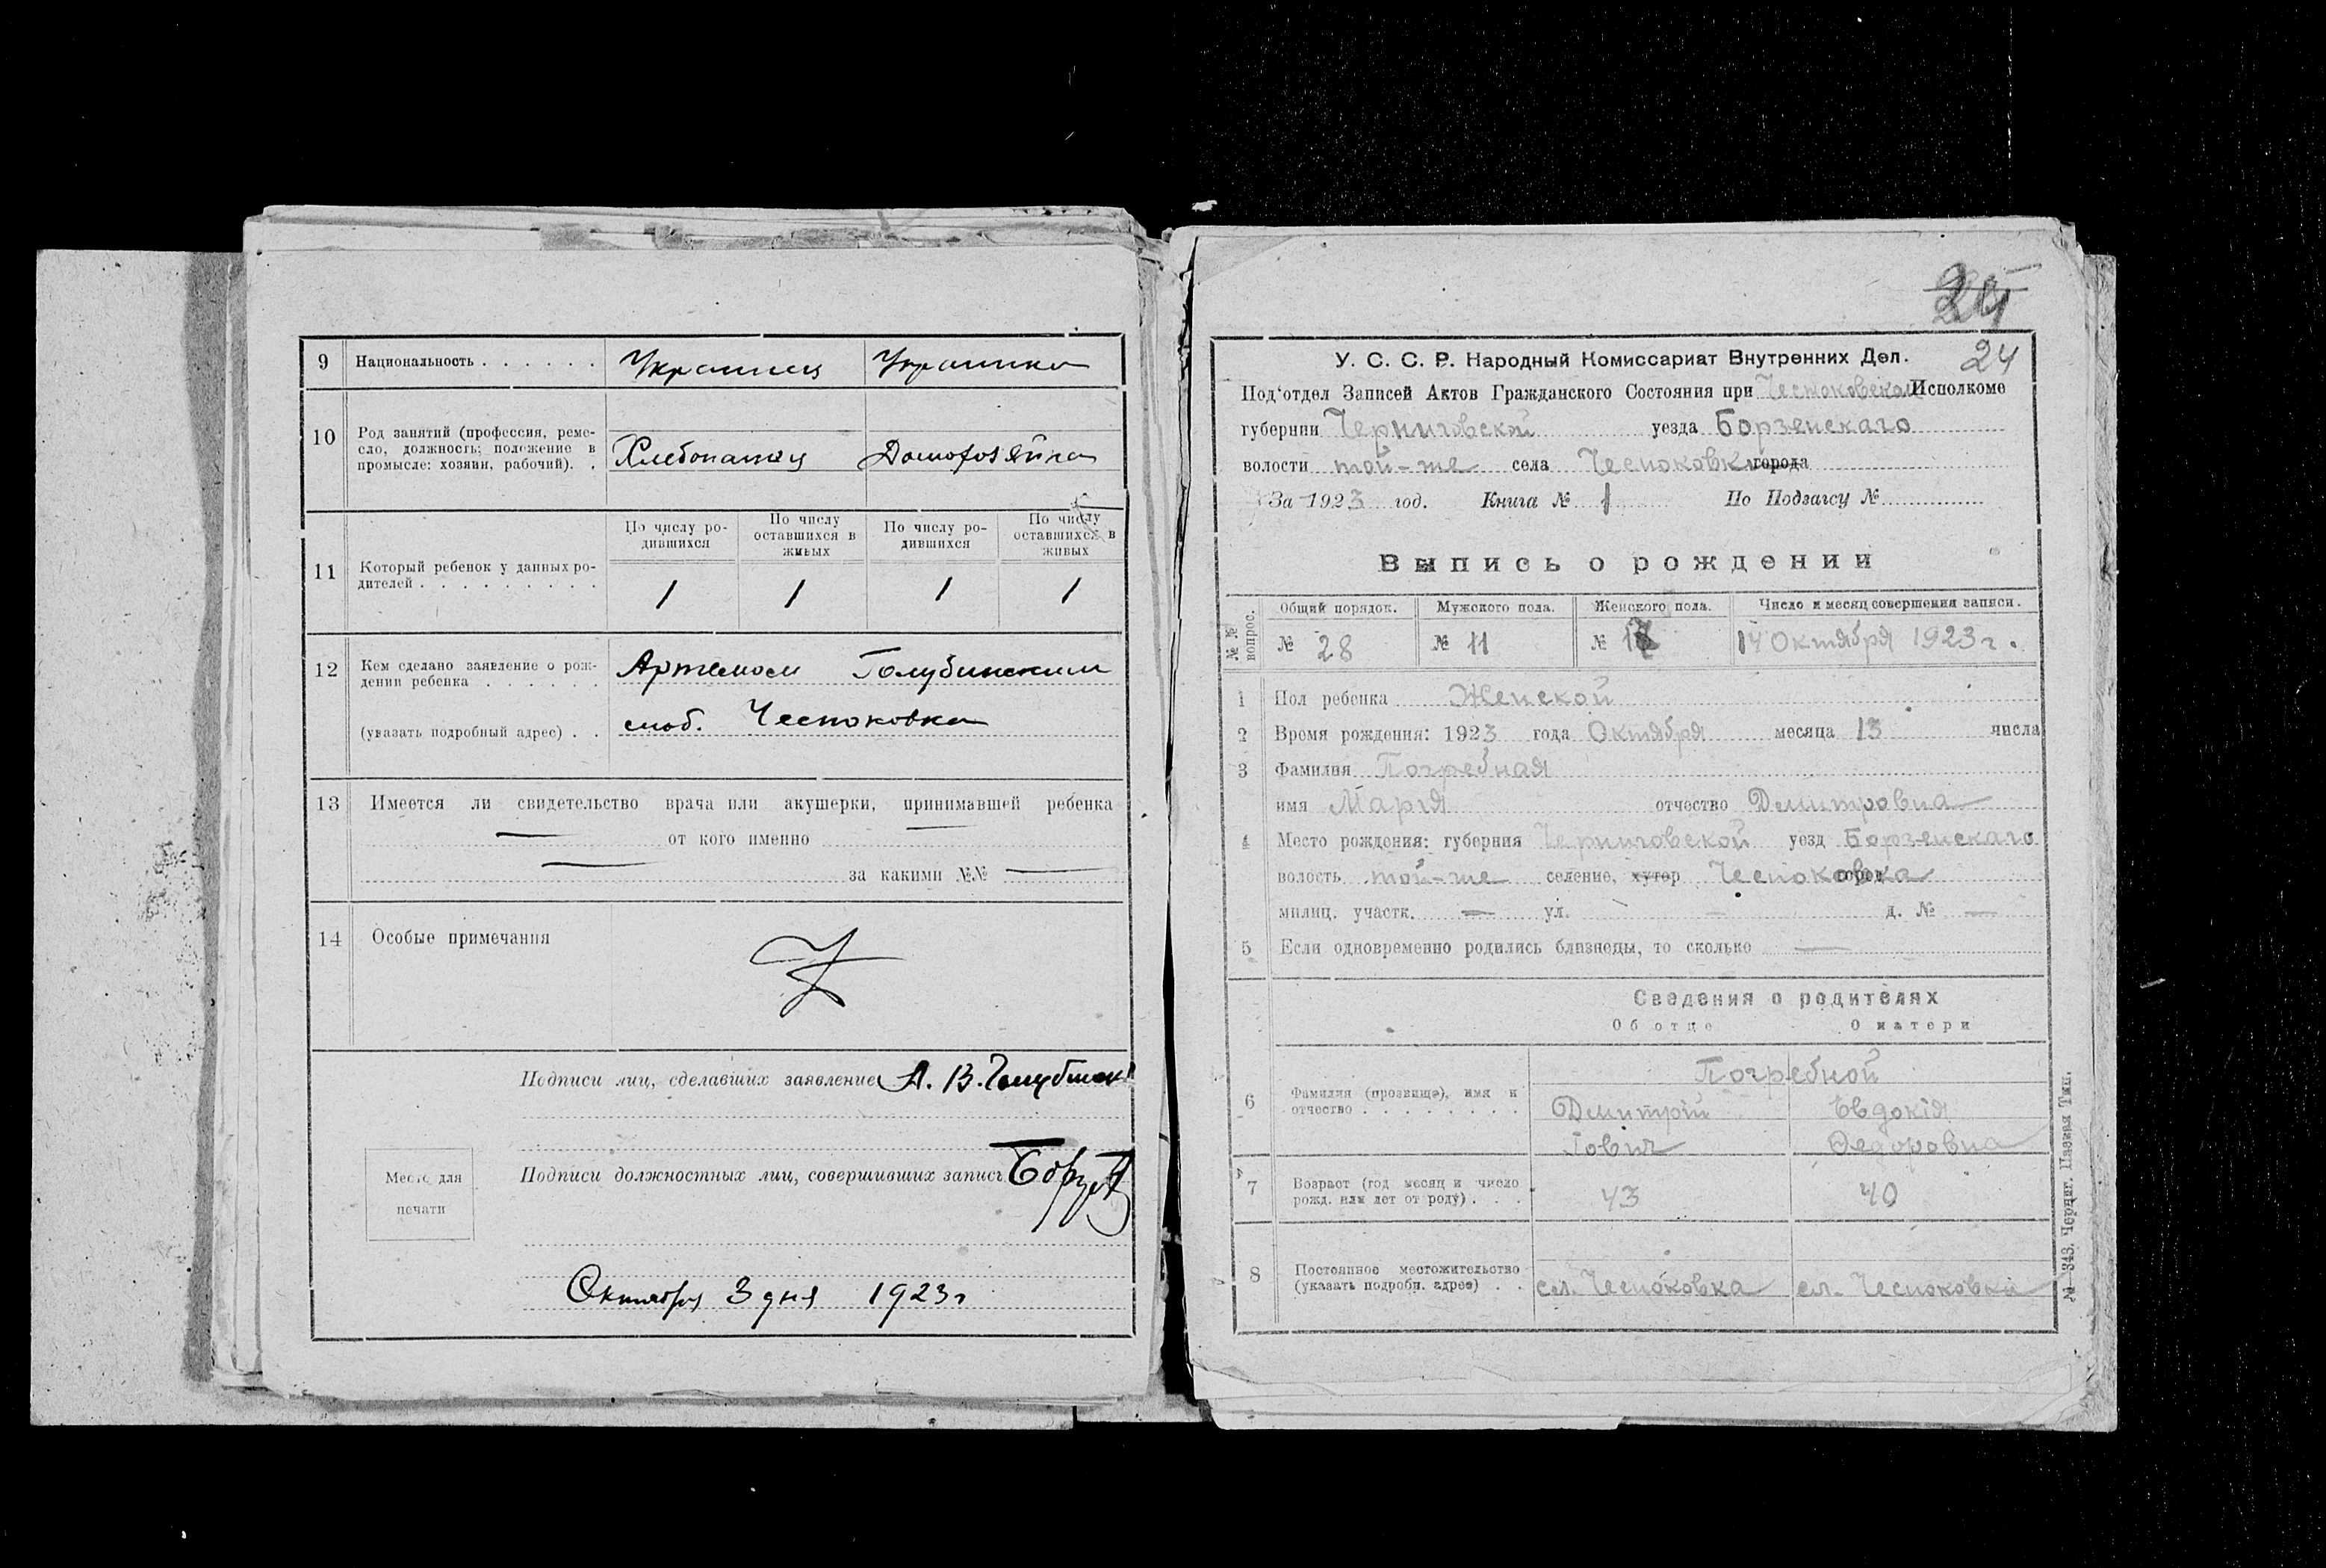 9 Национальность . . . . . . Украинец Украинка
10 Род занятий (профессия, реме-
сло, должность; положение в
промысле: хозяин, рабочий). . Хлебопашец Домохозяйка
11 Который ребенок у данных ро-
дителей . . . . . . . . .
По числу ро-
дившихся
По числу
оставшихся в
живых
По числу ро-
дившихся
По числу
оставшихся в
живых
1 1 1 1
12 Кем сделано заявление о рож-
дении ребенка . . . . . . Артемом Голубинским
(указать подробный адрес) . . слоб. Чесноковка
13 Имеется ли свидетельство врача или акушерки, принимавшей ребенка
— от кого именно —
— за какими №№ —
14 Особые примечания
Подписи лиц, сделавших заявление А. В.
Место для
печати
Подписи должностных лиц, совершивших запись
Октября 3 дня 1923 г
24
У. С. С. Р. Народный Комиссариат Внутренних Дел.
Под‘отдел Записей Актов Гражданского Состояния при Чесноковском Исполкоме
губернии Черниговской уезда Борзенскаго
волости той-же села Чесноковки города
За 1923 год. Книга № 1 По Подзагсу №
Выпись о рождении
№№ вопрос.
Общий порядок. Мужского пола. Женского пола. Число и месяц совершения записи.
№ 28 № 11 № 17 14 Октября 1923 г.
1 Пол ребенка Женской
2 Время рождения: 1923 года Октября месяца 13 числа
3 Фамилия Погребная
имя Марія отчество Дмитровна
4 Место рождения: губерния Черниговской уезд Борзенскаго
волость той-же селение, хутор Чесноковка город
милиц. участк. — ул. — д. № —
5 Если одновременно родились близнецы, то сколько —
Сведения о родителях
Об отце О матери
Погребной
6 Фамилия (прозвище), имя и
отчество . . . . . . . . Дмитрій Евдокія
Іович Федоровна
7 Возраст (год месяц и число
рожд. или лет от роду) . . . 43 40
8 Постоянное местожительство
(указать подробн. адрес) . . сл. Чесноковка сл. Чесноковка
№ 343. Черниг. Паевая Тип.